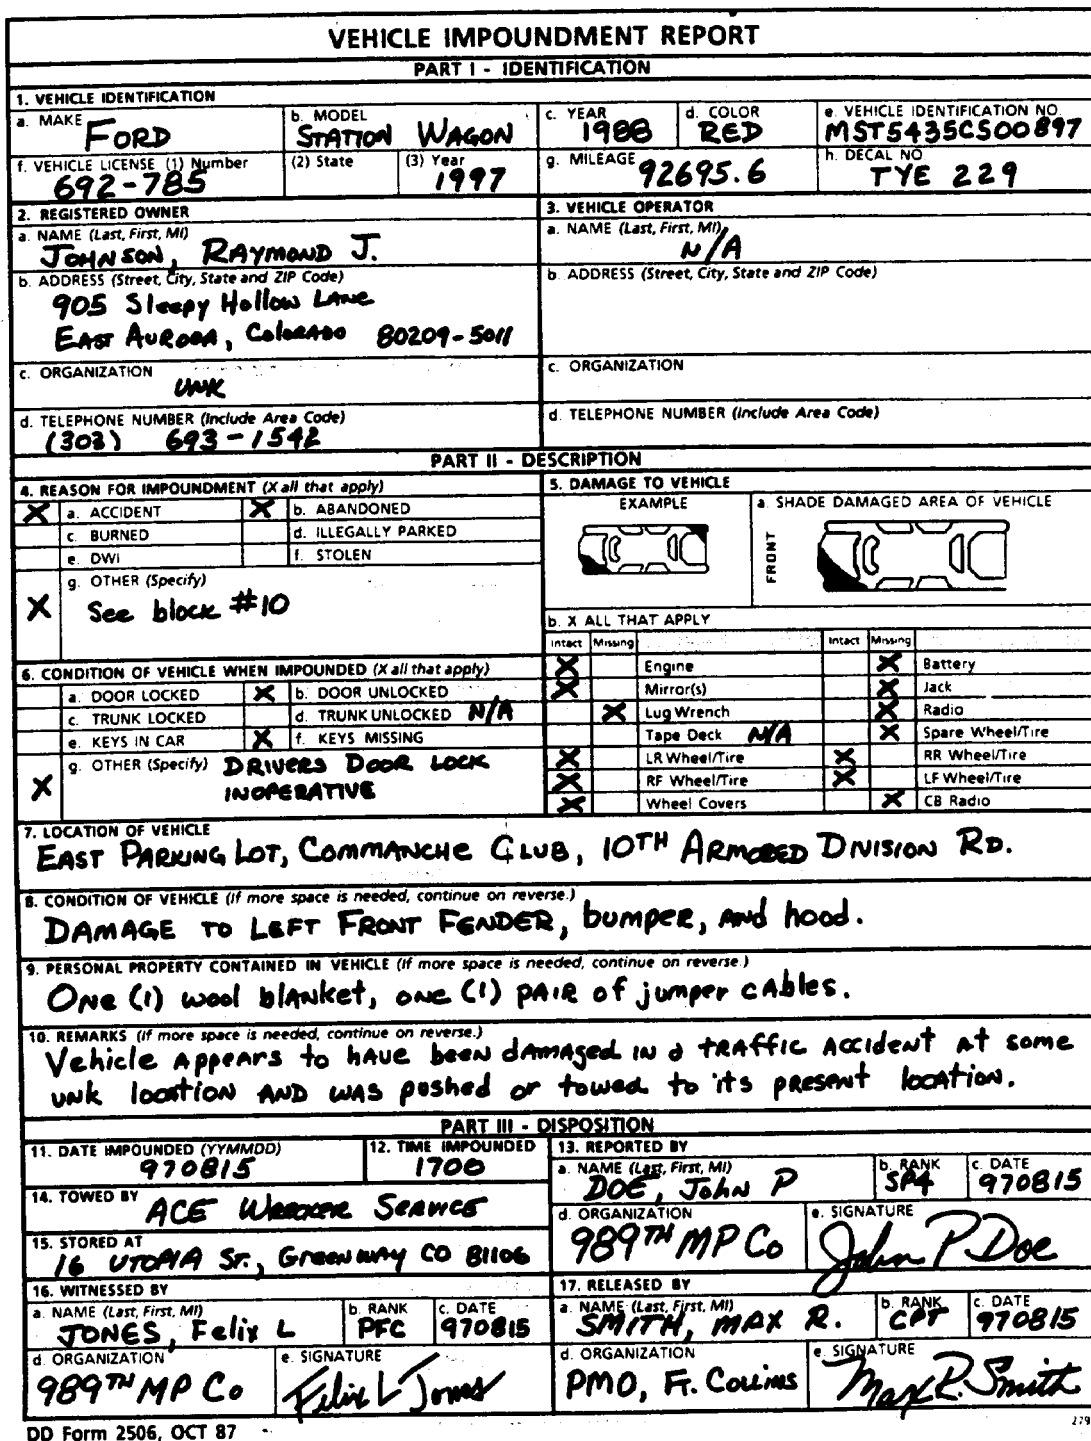 VEHICLE IMPOUNDMENT REPORT
PART I - IDENTIFICATION
1. VEHICLE IDENTIFICATION
a. MAKE FORD
b. MODEL STATION WAGON
c. YEAR 1988
d. COLOR RED
e. VEHICLE IDENTIFICATION NO. MST5435CS00897
f. VEHICLE LICENSE (1) Number 692-785
(2) State
(3) Year 1997
g. MILEAGE 92695.6
h. DECAL NO. TYE 229
2. REGISTERED OWNER
a. NAME (Last, First, MI)
JOHNSON, RAYMOND J.
b. ADDRESS (Street, City, State and ZIP Code)
905 Sleepy Hollow LANE
EAST AURORA, COLORADO 80209-5011
c. ORGANIZATION
UNK
d. TELEPHONE NUMBER (Include Area Code)
(303) 693-1542
3. VEHICLE OPERATOR
a. NAME (Last, First, MI)
N/A
b. ADDRESS (Street, City, State and ZIP Code)
c. ORGANIZATION
d. TELEPHONE NUMBER (Include Area Code)
PART II - DESCRIPTION
4. REASON FOR IMPOUNDMENT (X all that apply)
X a. ACCIDENT X b. ABANDONED
c. BURNED d. ILLEGALLY PARKED
e. DWI f. STOLEN
X g. OTHER (Specify)
See block #10
5. DAMAGE TO VEHICLE
EXAMPLE
a. SHADE DAMAGED AREA OF VEHICLE
FRONT
b. X ALL THAT APPLY
Intact Missing Intact Missing
X Engine X Battery
X Mirror(s) X Jack
X Lug Wrench X Radio
Tape Deck N/A X Spare Wheel/Tire
X LR Wheel/Tire X RR Wheel/Tire
X RF Wheel/Tire X LF Wheel/Tire
X Wheel Covers X CB Radio
6. CONDITION OF VEHICLE WHEN IMPOUNDED (X all that apply)
a. DOOR LOCKED X b. DOOR UNLOCKED
c. TRUNK LOCKED d. TRUNK UNLOCKED N/A
e. KEYS IN CAR X f. KEYS MISSING
X g. OTHER (Specify) DRIVERS DOOR LOCK
INOPERATIVE
7. LOCATION OF VEHICLE
EAST PARKING LOT, COMMANCHE CLUB, 10TH ARMORED DIVISION RD.
8. CONDITION OF VEHICLE (If more space is needed, continue on reverse.)
DAMAGE TO LEFT FRONT FENDER, bumper, AND hood.
9. PERSONAL PROPERTY CONTAINED IN VEHICLE (If more space is needed, continue on reverse.)
ONE (1) wool blANket, ONE (1) PAIR of jumper cAbles.
10. REMARKS (If more space is needed, continue on reverse.)
Vehicle APPEARS to hAve been dAmAged IN a tRAFFIC Accident At some
UNK locAtion AND WAS pushed or towed to its PRESENT locAtion.
PART III - DISPOSITION
11. DATE IMPOUNDED (YYMMDD)
970815
12. TIME IMPOUNDED
1700
13. REPORTED BY
a. NAME (Last, First, MI)
DOE, John P
b. RANK
SP4
c. DATE
970815
d. ORGANIZATION
989TH MP Co
e. SIGNATURE
John P Doe
14. TOWED BY
ACE WRECKER SERVICE
15. STORED AT
16 UTOPIA ST., GREENWAY CO 81106
16. WITNESSED BY
a. NAME (Last, First, MI)
JONES, Felix L
b. RANK
PFC
c. DATE
970815
d. ORGANIZATION
989TH MP Co
e. SIGNATURE
Felix L Jones
17. RELEASED BY
a. NAME (Last, First, MI)
SMITH, MAX R.
b. RANK
CPT
c. DATE
970815
d. ORGANIZATION
PMO, FT. COLLINS
e. SIGNATURE
Max R. Smith
DD Form 2506, OCT 87
279